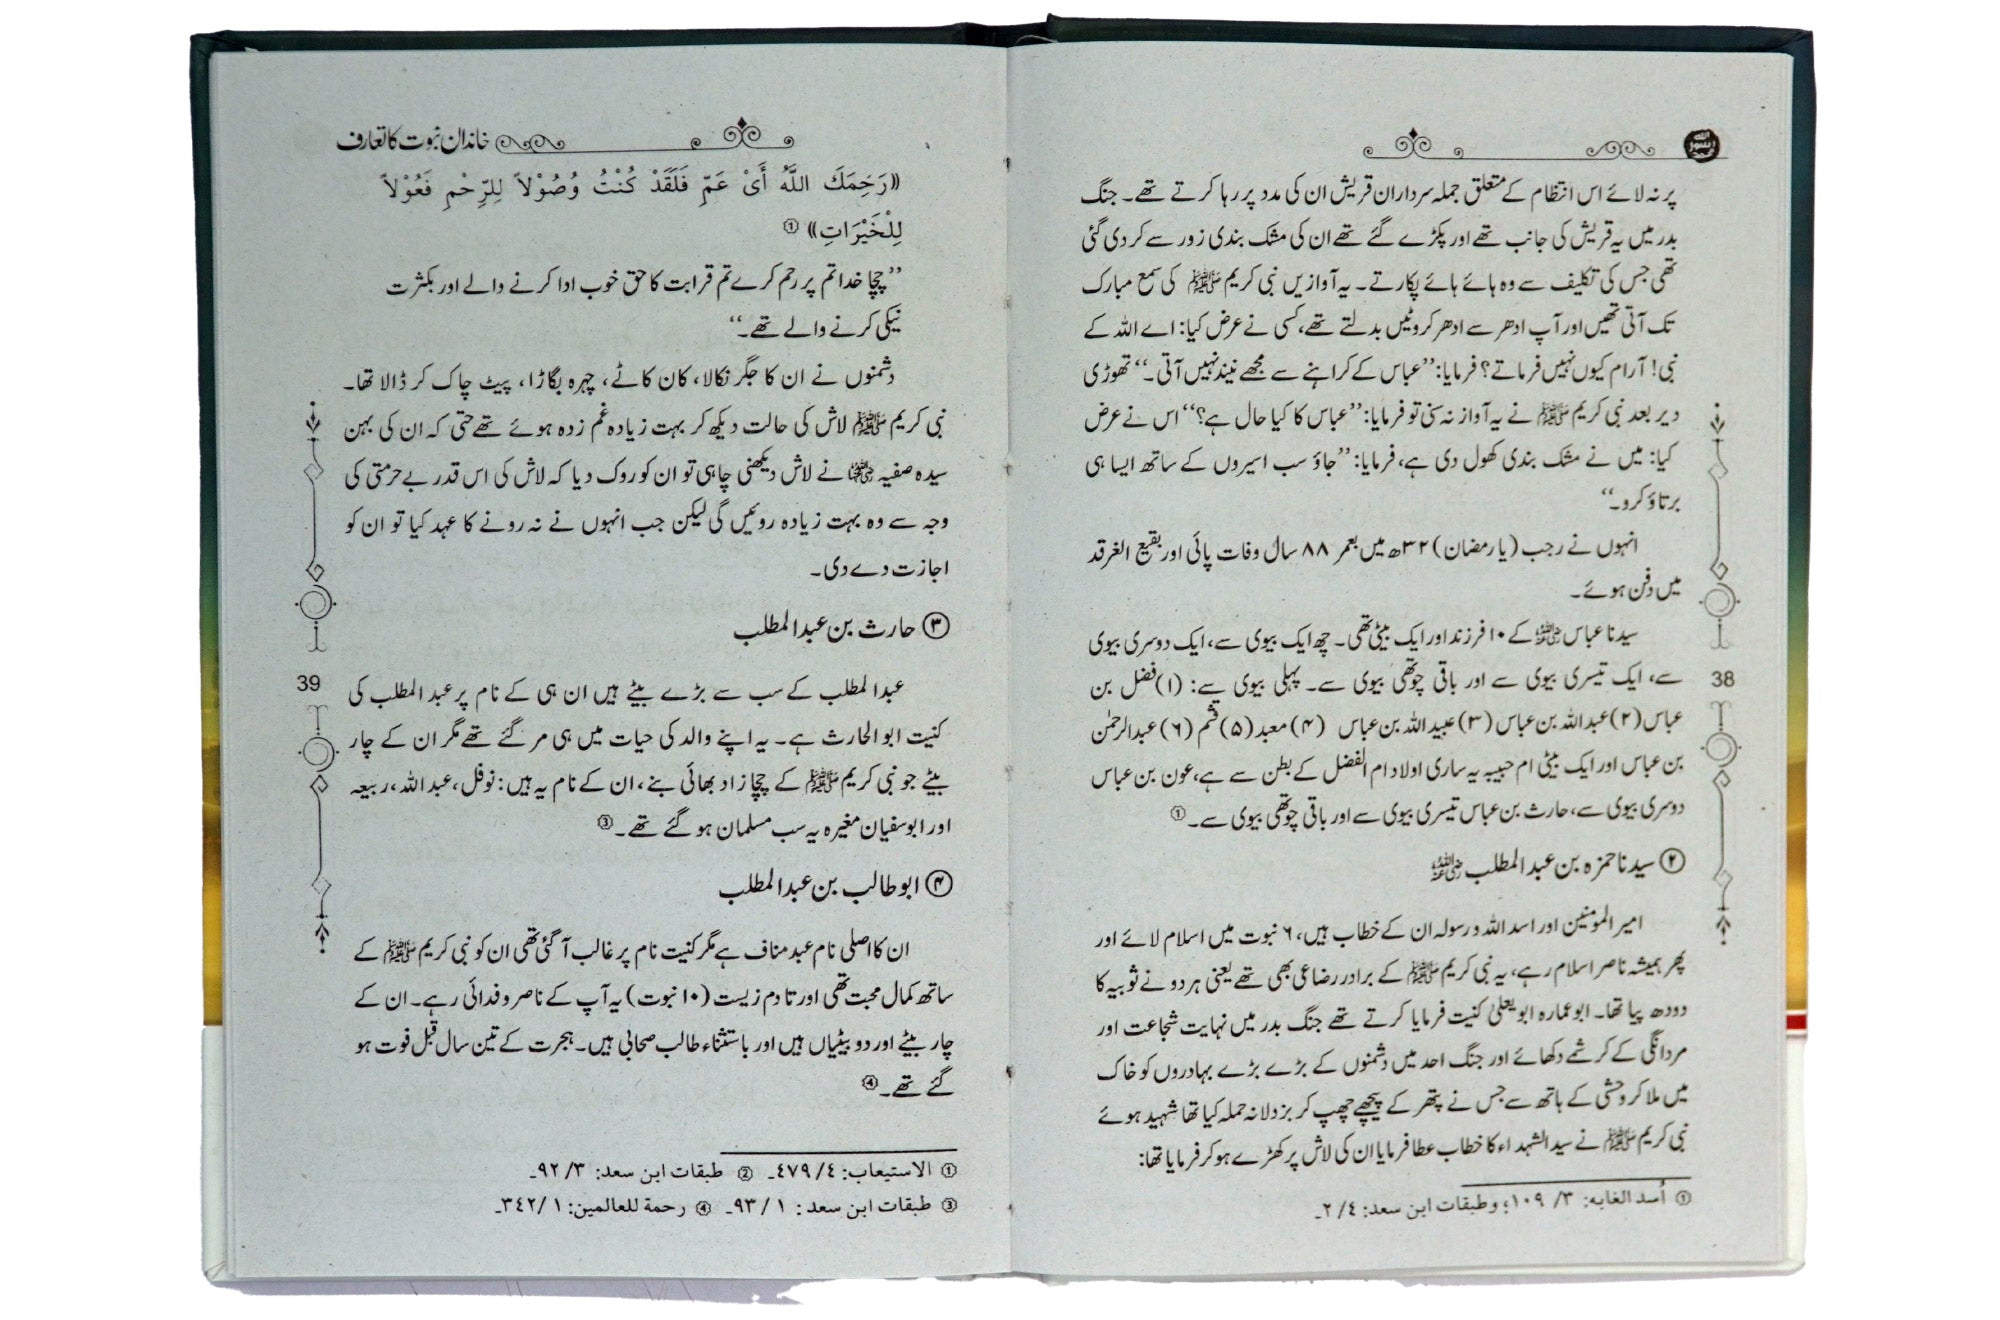 پر نہ لائے اس انتظام کے متعلق جملہ سرداران قریش ان کی مدد پر رہا کرتے تھے۔ جنگ
بدر میں یہ قریش کی جانب تھے اور پکڑے گئے تھے ان کی مشک بندی زور سے کر دی گئی
تھی جس کی تکلیف سے وہ ہائے ہائے پکارتے۔ یہ آوازیں نبی کریم ﷺ کی سمع مبارک
تک آتی تھیں اور آپ ادھر سے ادھر کروٹیں بدلتے تھے، کسی نے عرض کیا: اے اللہ کے
نبی! آرام کیوں نہیں فرماتے؟ فرمایا: ’’عباس کے کراہنے سے مجھے نیند نہیں آتی۔‘‘ تھوڑی
دیر بعد نبی کریم ﷺ نے یہ آواز نہ سنی تو فرمایا: ’’عباس کا کیا حال ہے؟‘‘ اس نے عرض
کیا: میں نے مشک بندی کھول دی ہے، فرمایا: ’’جاؤ سب اسیروں کے ساتھ ایسا ہی
برتاؤ کرو۔‘‘
انہوں نے رجب (یا رمضان) ۳۲ھ میں بعمر ۸۸ سال وفات پائی اور بقیع الغرقد
میں دفن ہوئے۔
سیدنا عباس رضی اللہ عنہ کے ۱۰ فرزند اور ایک بیٹی تھی۔ چھ ایک بیوی سے، ایک دوسری بیوی
سے، ایک تیسری بیوی سے اور باقی چوتھی بیوی سے۔ پہلی بیوی سے: (۱) فضل بن
عباس (۲) عبداللہ بن عباس (۳) عبیداللہ بن عباس (۴) معبد (۵) قثم (۶) عبدالرحمٰن
بن عباس اور ایک بیٹی ام حبیبہ یہ ساری اولاد ام الفضل کے بطن سے ہے، عون بن عباس
دوسری بیوی سے، حارث بن عباس تیسری بیوی سے اور باقی چوتھی بیوی سے۔ ①
② سیدنا حمزہ بن عبدالمطلب رضی اللہ عنہ
امیر المومنین اور اسد اللہ ورسولہ ان کے خطاب ہیں، ۶ نبوت میں اسلام لائے اور
پھر ہمیشہ ناصر اسلام رہے، یہ نبی کریم ﷺ کے برادر رضاعی بھی تھے یعنی ہر دو نے ثویبہ کا
دودھ پیا تھا۔ ابو عمارہ ابو یعلیٰ کنیت فرمایا کرتے تھے جنگ بدر میں نہایت شجاعت اور
مردانگی کے کرشمے دکھائے اور جنگ احد میں دشمنوں کے بڑے بڑے بہادروں کو خاک
میں ملا کر وحشی کے ہاتھ سے جس نے پتھر کے پیچھے چھپ کر بزدلانہ حملہ کیا تھا شہید ہوئے
نبی کریم ﷺ نے سید الشہداء کا خطاب عطا فرمایا ان کی لاش پر کھڑے ہو کر فرمایا تھا:
① أسد الغابه: ۳/ ۱۰۹؛ وطبقات ابن سعد: ۴/ ۲۔
38
خاندان نبوت کا تعارف
((رَحِمَكَ اللّٰهُ أَىْ عَمِّ فَلَقَدْ كُنْتُ وُصُوْلاً لِلرِّحْمِ فَعُوْلاً
لِلْخَيْرَاتِ)) ①
’’چچا خدا تم پر رحم کرے تم قرابت کا حق خوب ادا کرنے والے اور بکثرت
نیکی کرنے والے تھے۔‘‘
دشمنوں نے ان کا جگر نکالا، کان کاٹے، چہرہ بگاڑا، پیٹ چاک کر ڈالا تھا۔
نبی کریم ﷺ لاش کی حالت دیکھ کر بہت زیادہ غم زدہ ہوئے تھے حتی کہ ان کی بہن
سیدہ صفیہ رضی اللہ عنہا نے لاش دیکھنی چاہی تو ان کو روک دیا کہ لاش کی اس قدر بے حرمتی کی
وجہ سے وہ بہت زیادہ روئیں گی لیکن جب انہوں نے نہ رونے کا عہد کیا تو ان کو
اجازت دے دی۔
③ حارث بن عبدالمطلب
عبدالمطلب کے سب سے بڑے بیٹے ہیں ان ہی کے نام پر عبدالمطلب کی
کنیت ابوالحارث ہے۔ یہ اپنے والد کی حیات میں ہی مر گئے تھے مگر ان کے چار
بیٹے جو نبی کریم ﷺ کے چچا زاد بھائی بنے، ان کے نام یہ ہیں: نوفل، عبداللہ، ربیعہ
اور ابوسفیان مغیرہ یہ سب مسلمان ہو گئے تھے۔ ③
④ ابو طالب بن عبدالمطلب
ان کا اصلی نام عبدمناف ہے مگر کنیت نام پر غالب آ گئی تھی ان کو نبی کریم ﷺ کے
ساتھ کمال محبت تھی اور تا دم زیست (۱۰ نبوت) یہ آپ کے ناصر و فدائی رہے۔ ان کے
چار بیٹے اور دو بیٹیاں ہیں اور باستثناء طالب صحابی ہیں۔ ہجرت کے تین سال قبل فوت ہو
گئے تھے۔ ④
① الاستیعاب: ۴/ ۴۷۹۔ ② طبقات ابن سعد: ۳/ ۹۲۔
③ طبقات ابن سعد: ۱/ ۹۳۔ ④ رحمة للعالمین: ۱/ ۳۴۲۔
39